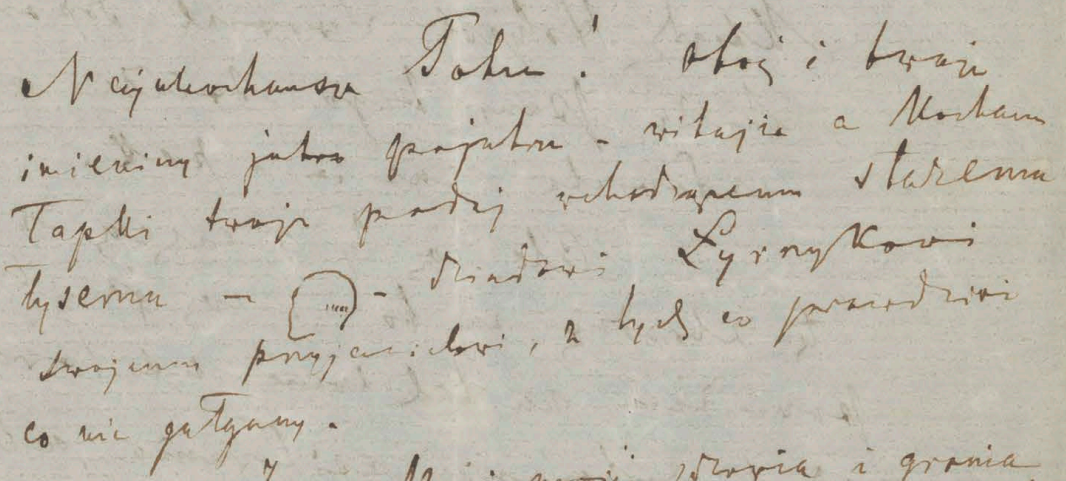 Najukochańsza Tolu! otóż i twoje
imieniny jutro - witajże a kochane
łapki twoje podaj wchodzącemu staremu
łysemu — - dziadowi Łyrnykowi
swojemu przyjacielowi, z tych co prawdziwi
co nie gałgany.
zdrowia i grania